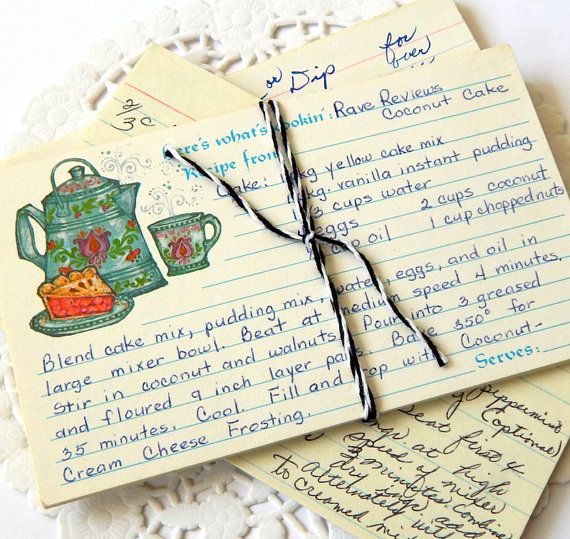 or Dip for
over
2/3 c
Here's what's cookin': Rave Reviews
Coconut Cake
Recipe from
Cake: pkg yellow cake mix
pkg. vanilla instant pudding
/3 cups water
eggs 2 cups coconut
cup oil 1 cup chopped nuts
Blend cake mix, pudding mix, water, eggs, and oil in
large mixer bowl. Beat at medium speed 4 minutes.
Stir in coconut and walnuts. Pour into 3 greased
and floured 9 inch layer pans. Bake 350° for
35 minutes. Cool. Fill and top with Coconut-
Cream Cheese Frosting.
Serves:
(optional)
Beat first 4
at high
speed of mixer
3 minutes combine
dry ings add
alternately with
to creamed mi